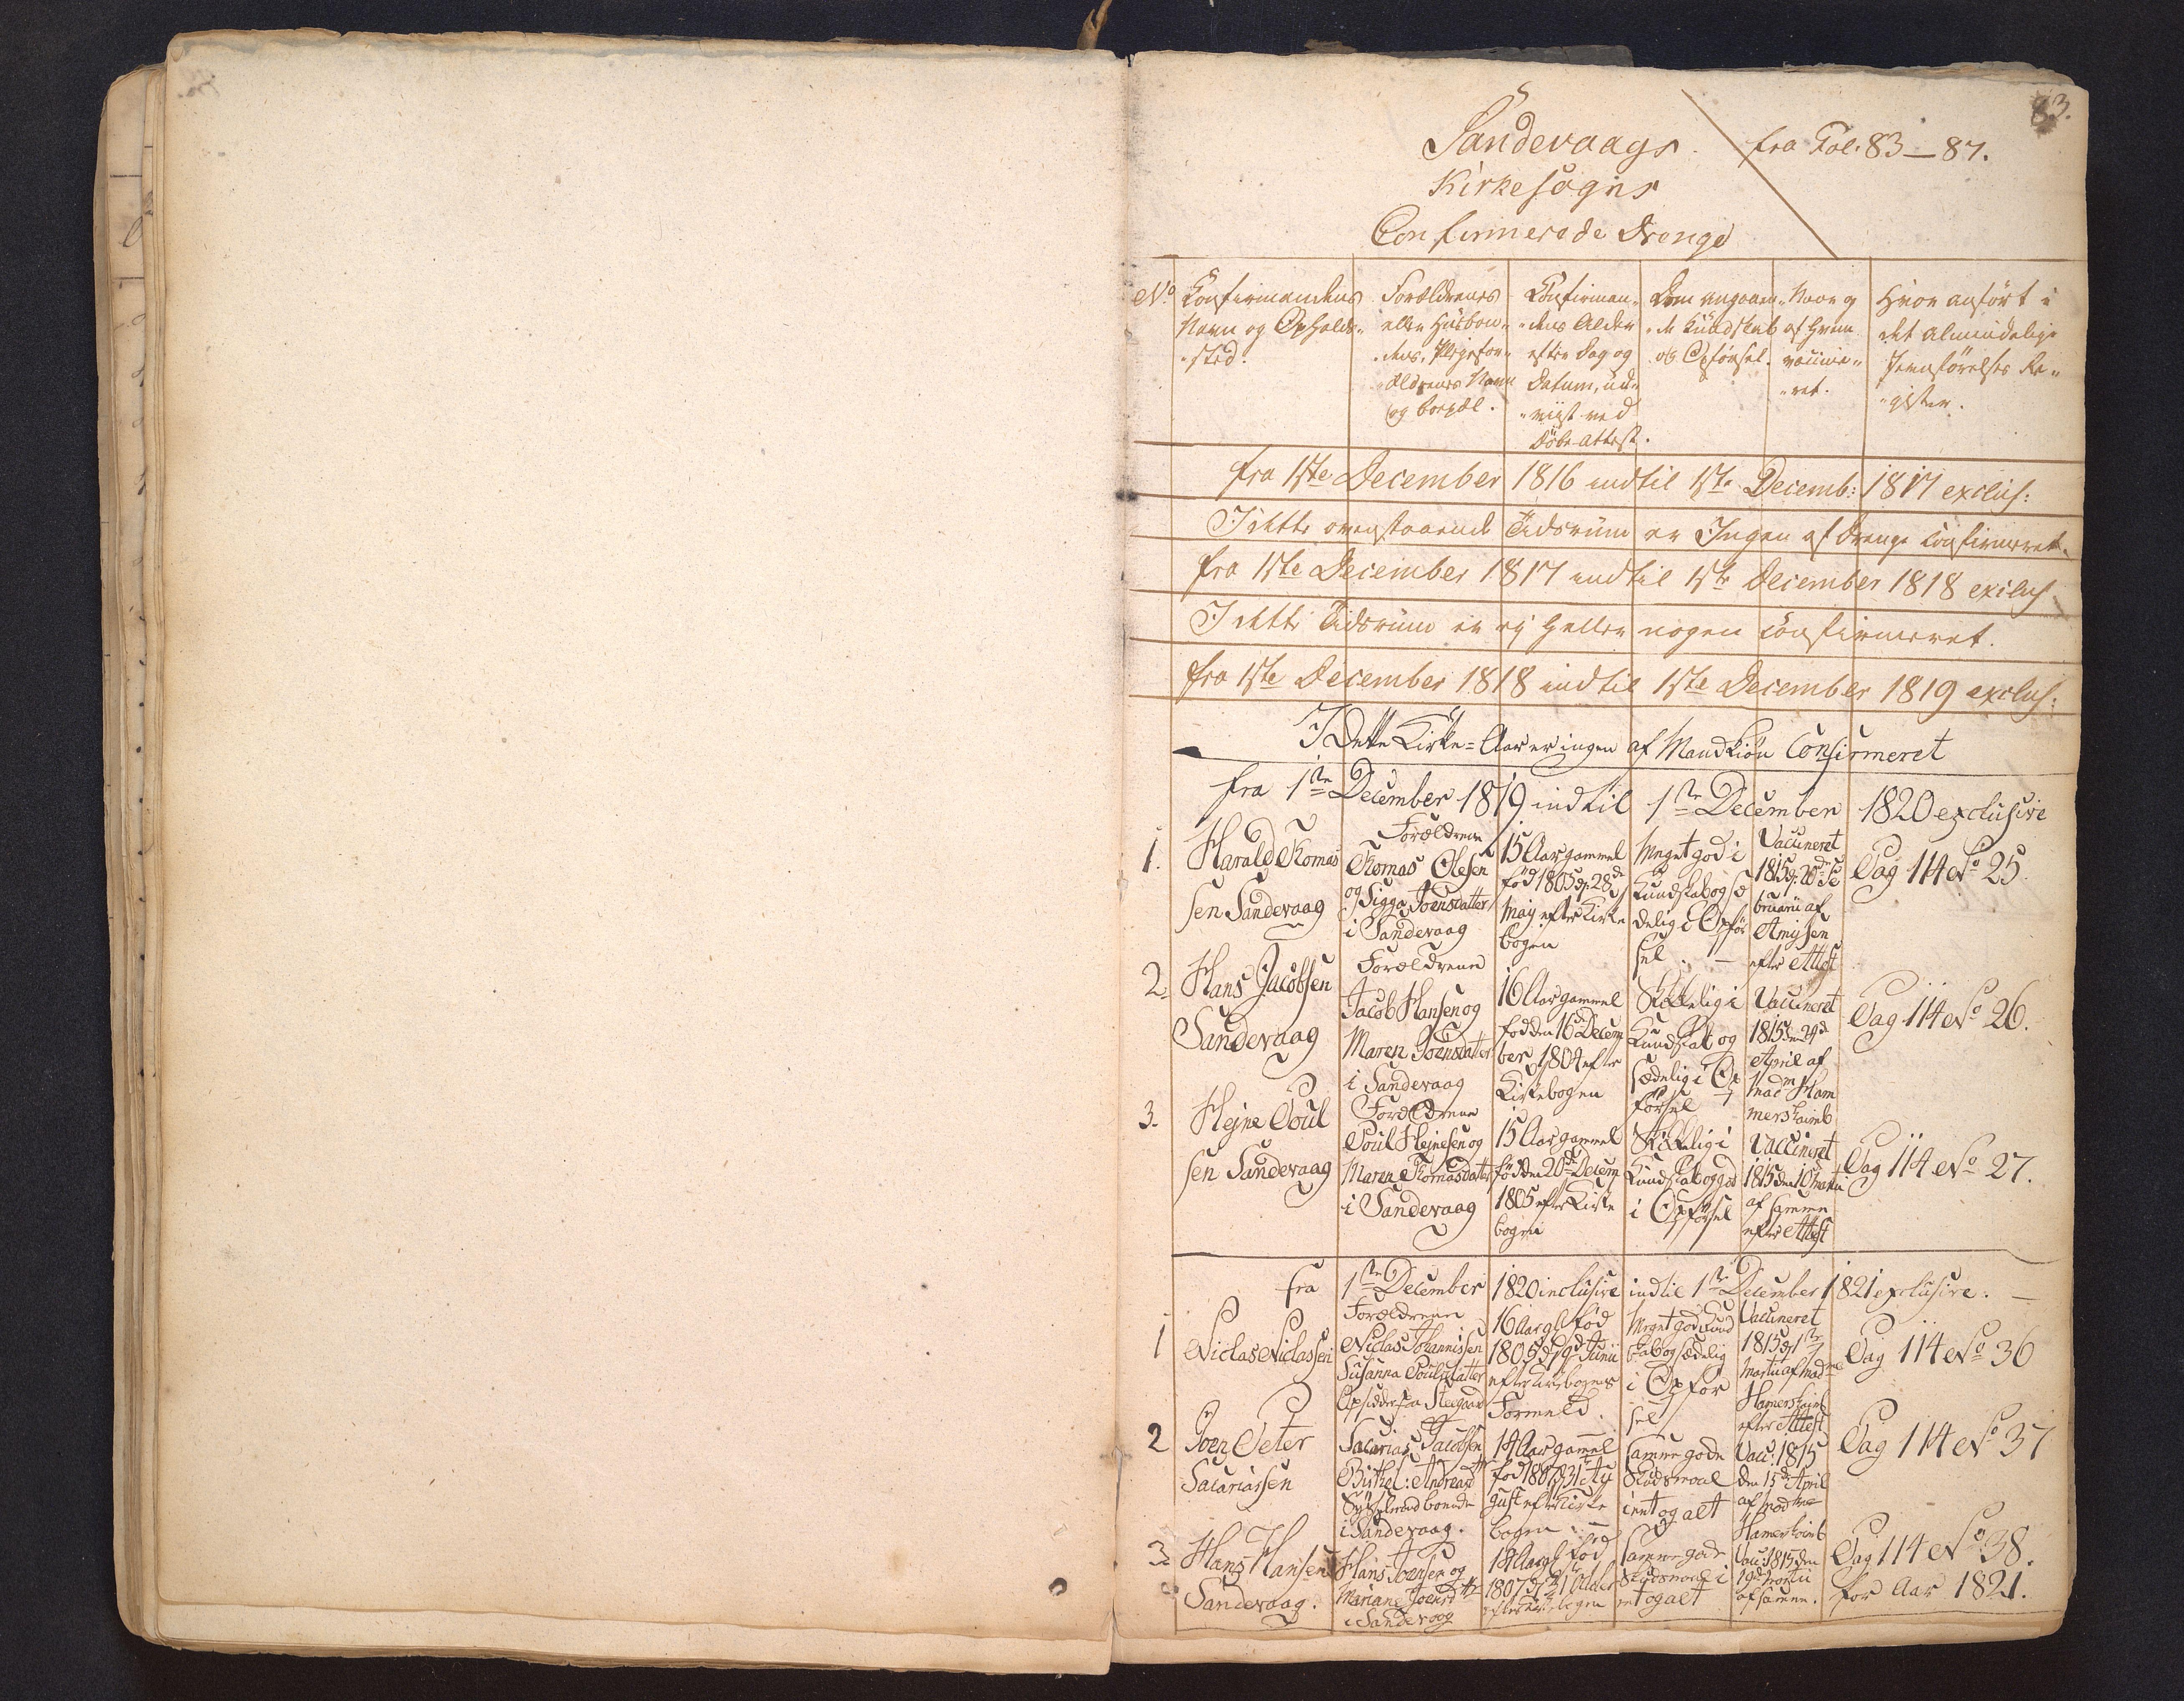 83.
Sandevaags
fra Fol. 83 — 87.
Kirkesogns
Confirmerede Drenge
No.
Confirmandens
Navn og Opholds-
-sted.
Forældrenes
eller Husbon-
-dens, Plejefor-
-ældrenes Navn
og bopæl.
Confirman-
-dens Alder
efter Dag og
Datum, ud-
-viist ved
Døbe-Attest.
Dom angaaen-
-de Kundskab
og Opførsel.
Naar og
af hvem
vaccine-
-ret.
Hvor anført i
det almindelige
Jevnførelses Re-
-gister.
fra 1ste December 1816 indtil 1ste Decemb: 1817 exclus:
I dette ovenstaaende Tidsrum er Ingen af Drenge confirmeret.
fra 1ste December 1817 indtil 1ste December 1818 exclus
I dette Tidsrum er ej heller nogen confirmeret.
fra 1ste December 1818 indtil 1ste December 1819 exclus:
I Dette Kirke-Aar er ingen af Mandkiøn Confirmeret
fra 1ste December 1819 indtil 1ste December 1820 exclusive
1.
Harald Thomas
sen Sandevaag
Forældrene
Thomas Olesen
og Sigga Joensdatter
i Sandevaag
15 Aar gammel
fød 1805 d. 28de
Maij efter Kirke
bogen
Meget god i
Kundskab og sæ
delig i Opfør
sel. —
Vaccineret
1815 d. 20de Fe
bruarii af
efter Attest
Pag 114 No 25.
2.
Hans Jacobsen
Sandevaag
Forældrene
Jacob Hansen og
Maren Joensdatter
i Sandevaag
16 Aar gammel
fød den 16de Decem
ber 1804 efter
Kirkebogen
Skikkelig i
Kundskab og
sædelig i Op
førsel
Vaccineret
1815 den 29de
April af
Madm Ham
mershaimb
Pag 114 No 26.
3.
Hejne Poul
sen Sandevaag
Forældrene
Poul Hejnesen og
Maren Thomasdatter
i Sandevaag
15 Aar gammel
fød den 20de Decem
1805 efter Kirke
bogen
Skikkelig i
Kundskab og god
i Opførsel
Vaccineret
1815 den 10 Martii
af samme
efter Attest
Pag 114 No 27.
fra 1ste December 1820 inclusive indtil 1ste December 1821 exclusive. —
1
Niclas Niclassen
Forældrene
Niclas Johannissen
Susanna Poulsdatter
Opsidder paa Steegaard
16 Aar gl. fød
1805 d. 19de Junii
efter Kirkbogens
Formeld.
Meget god Kund
skab og sædelig
i Opfør
sel
Vaccineret
1815 d. 1ste
Martii af Madme
Hamershaimb
efter Attest
Pag 114 No 36
2
Joen Peter
Sacariassen
Sacarias Jacobsen
Birthe: Andreasdtr
Sysselmand boende
i Sandevaag.
14 Aar gammel
fød 1807 d. 31te Au
gust efter Kirke
bogen
Samme gode
Skudsmaal
i eet og alt
Vacc: 1815
den 15de April
af Madme
Hamershaimb
Pag 114 No 37
3.
Hans Hansen
Sandevaag.
Hans Joensen og
Mariane Joensdtr
i Sandevaag
14 Aar gl. fød
1807 d. 21 October
efter Kirkebogen
Samme gode
Skudsmaal i
et og alt
Vacc: 1815 den
19de Martii
af samme.
Pag 114 No 38.
for Aar 1821.